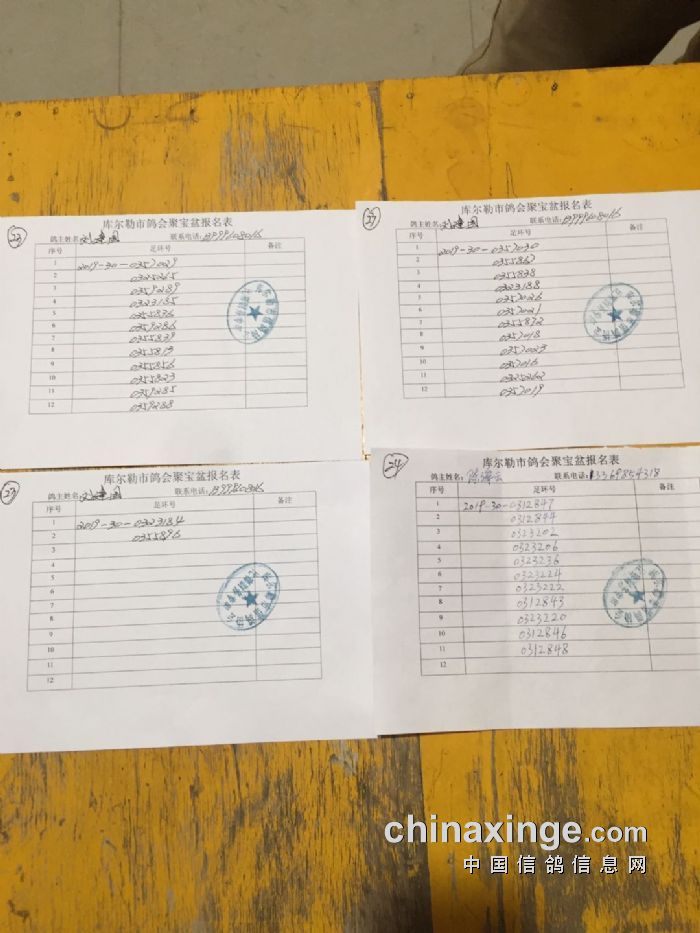 23
库尔勒市鸽会聚宝盆报名表
鸽主姓名: 刘建国 联系电话:
序号 足环号 备注
1 2019-30-0357029
2 0325265
3 0359289
4 0323185
5 0355836
6 0359286
7 0355839
8 0355813
9 0355856
10 0355823
11 0359285
12 0359288
库尔勒市鸽会聚宝盆报名表
鸽主姓名: 刘建国 联系电话:
序号 足环号 备注
1 2019-30-0357030
2 0355867
3 0355838
4 0323188
5 0357026
6 0357021
7 0355892
8 0357018
9 0357023
10 0357016
11 0325262
12 0357019
23
库尔勒市鸽会聚宝盆报名表
鸽主姓名: 刘建国 联系电话:
序号 足环号 备注
1 2019-30-0323184
2 0355896
3
4
5
6
7
8
9
10
11
12
24
库尔勒市鸽会聚宝盆报名表
鸽主姓名: 陈 云 联系电话: 13369854318
序号 足环号 备注
1 2019-30-0312847
2 0312844
3 0323202
4 0323206
5 0323236
6 0323224
7 0323222
8 0312843
9 0323220
10 0312846
11 0312848
12
chinaxinge.com
中国信鸽信息网